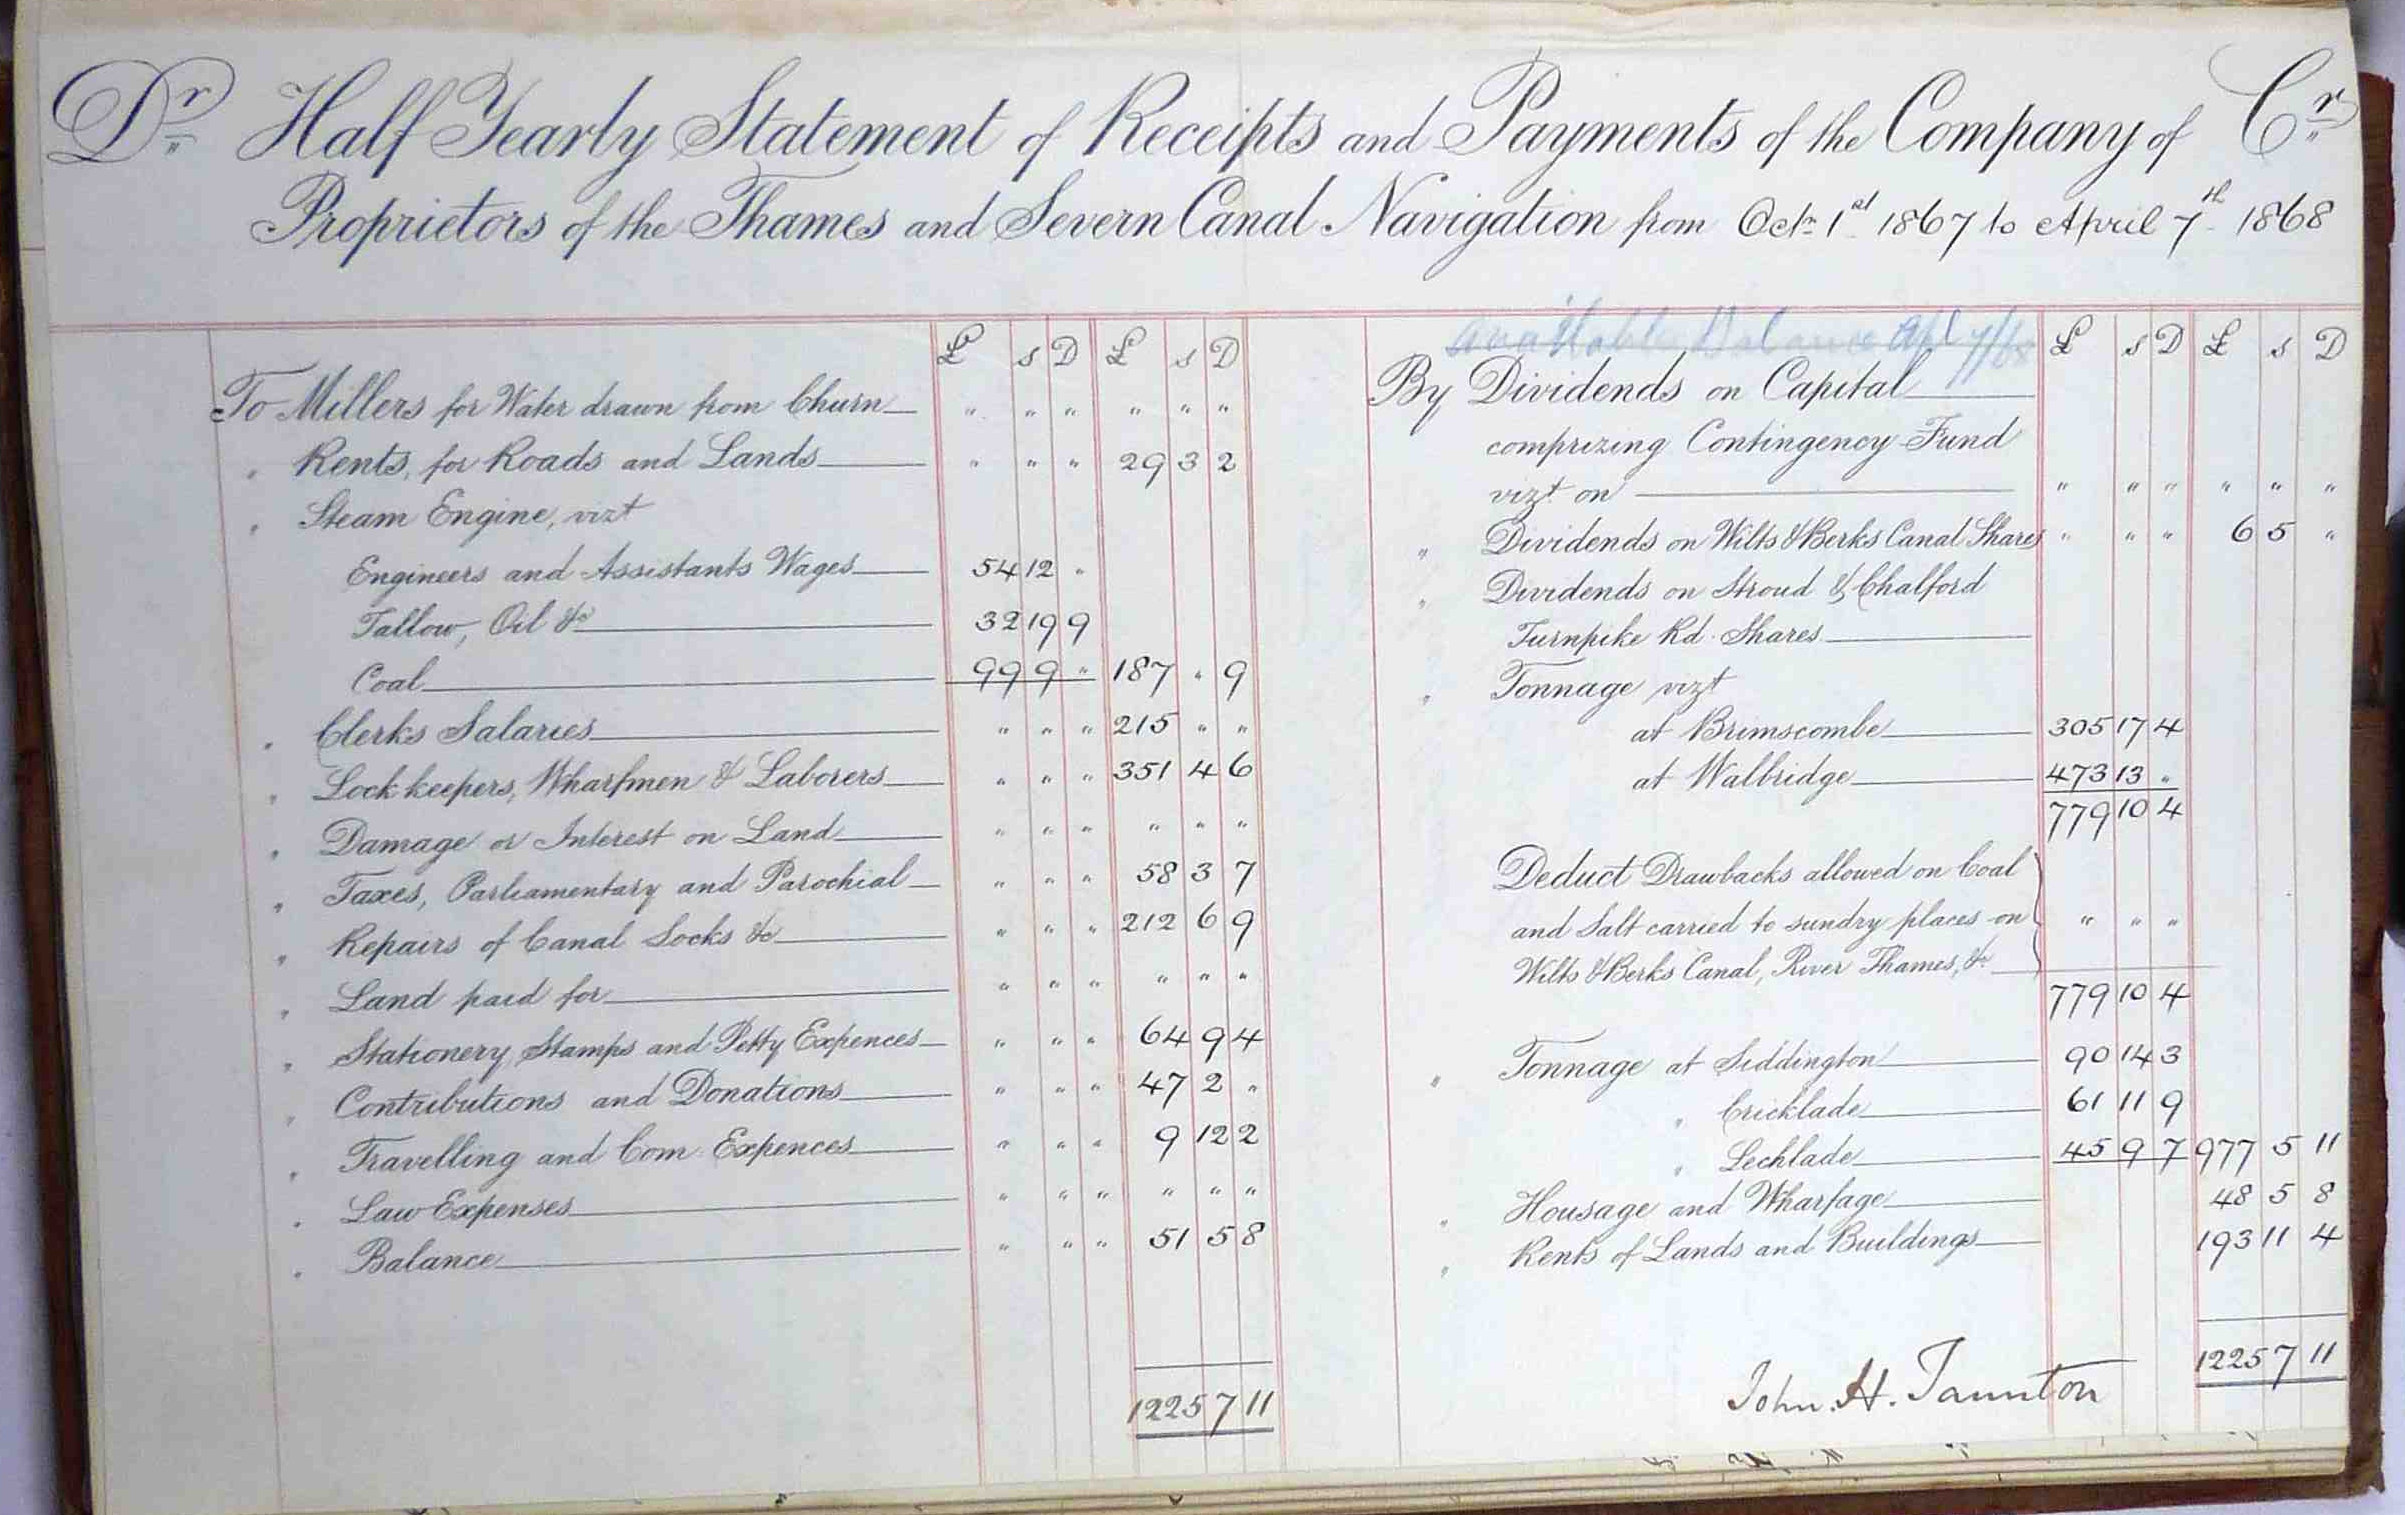 Dr Half Yearly Statement of Receipts and Payments of the Company of Cr
Proprietors of the Thames and Severn Canal Navigation from Octr 1st 1867 to April 7th 1868
£ s D £ s D
To Millers for Water drawn from Churn " " " " " "
" Rents, for Roads and Lands " " " 29 3 2
" Steam Engine, vizt
Engineers and Assistants Wages 54 12 "
Tallow, Oil &c 32 19 9
Coal 99 9 " 187 " 9
" Clerks Salaries " " " 215 " "
" Lock keepers, Wharfmen & Laborers " " " 351 4 6
" Damage or Interest on Land " " " " " "
" Taxes, Parliamentary and Parochial " " " 58 3 7
" Repairs of Canal Locks &c " " " 212 6 9
" Land paid for " " " " " "
" Stationery, Stamps and Petty Expences " " " 64 9 4
" Contributions and Donations " " " 47 2 "
" Travelling and Com Expences " " " 9 12 2
" Law Expenses " " " " " "
" Balance " " " 51 5 8
1225 7 11
available Balance Apl 7/68
£ s D £ s D
By Dividends on Capital
comprizing Contingency Fund
vizt on " " " " " "
" Dividends on Wilts & Berks Canal Shares " " " 6 5 "
" Dividends on Stroud & Chalford
Turnpike Rd. Shares
" Tonnage vizt
at Brimscombe 305 17 4
at Walbridge 473 13 "
779 10 4
Deduct Drawbacks allowed on Coal
and Salt carried to sundry places on " " "
Wilts & Berks Canal, River Thames, &c
779 10 4
" Tonnage at Siddington 90 14 3
" Cricklade 61 11 9
" Lechlade 45 9 7 977 5 11
" Housage and Wharfage 48 5 8
" Rents of Lands and Buildings 193 11 4
1225 7 11
John. H. Taunton